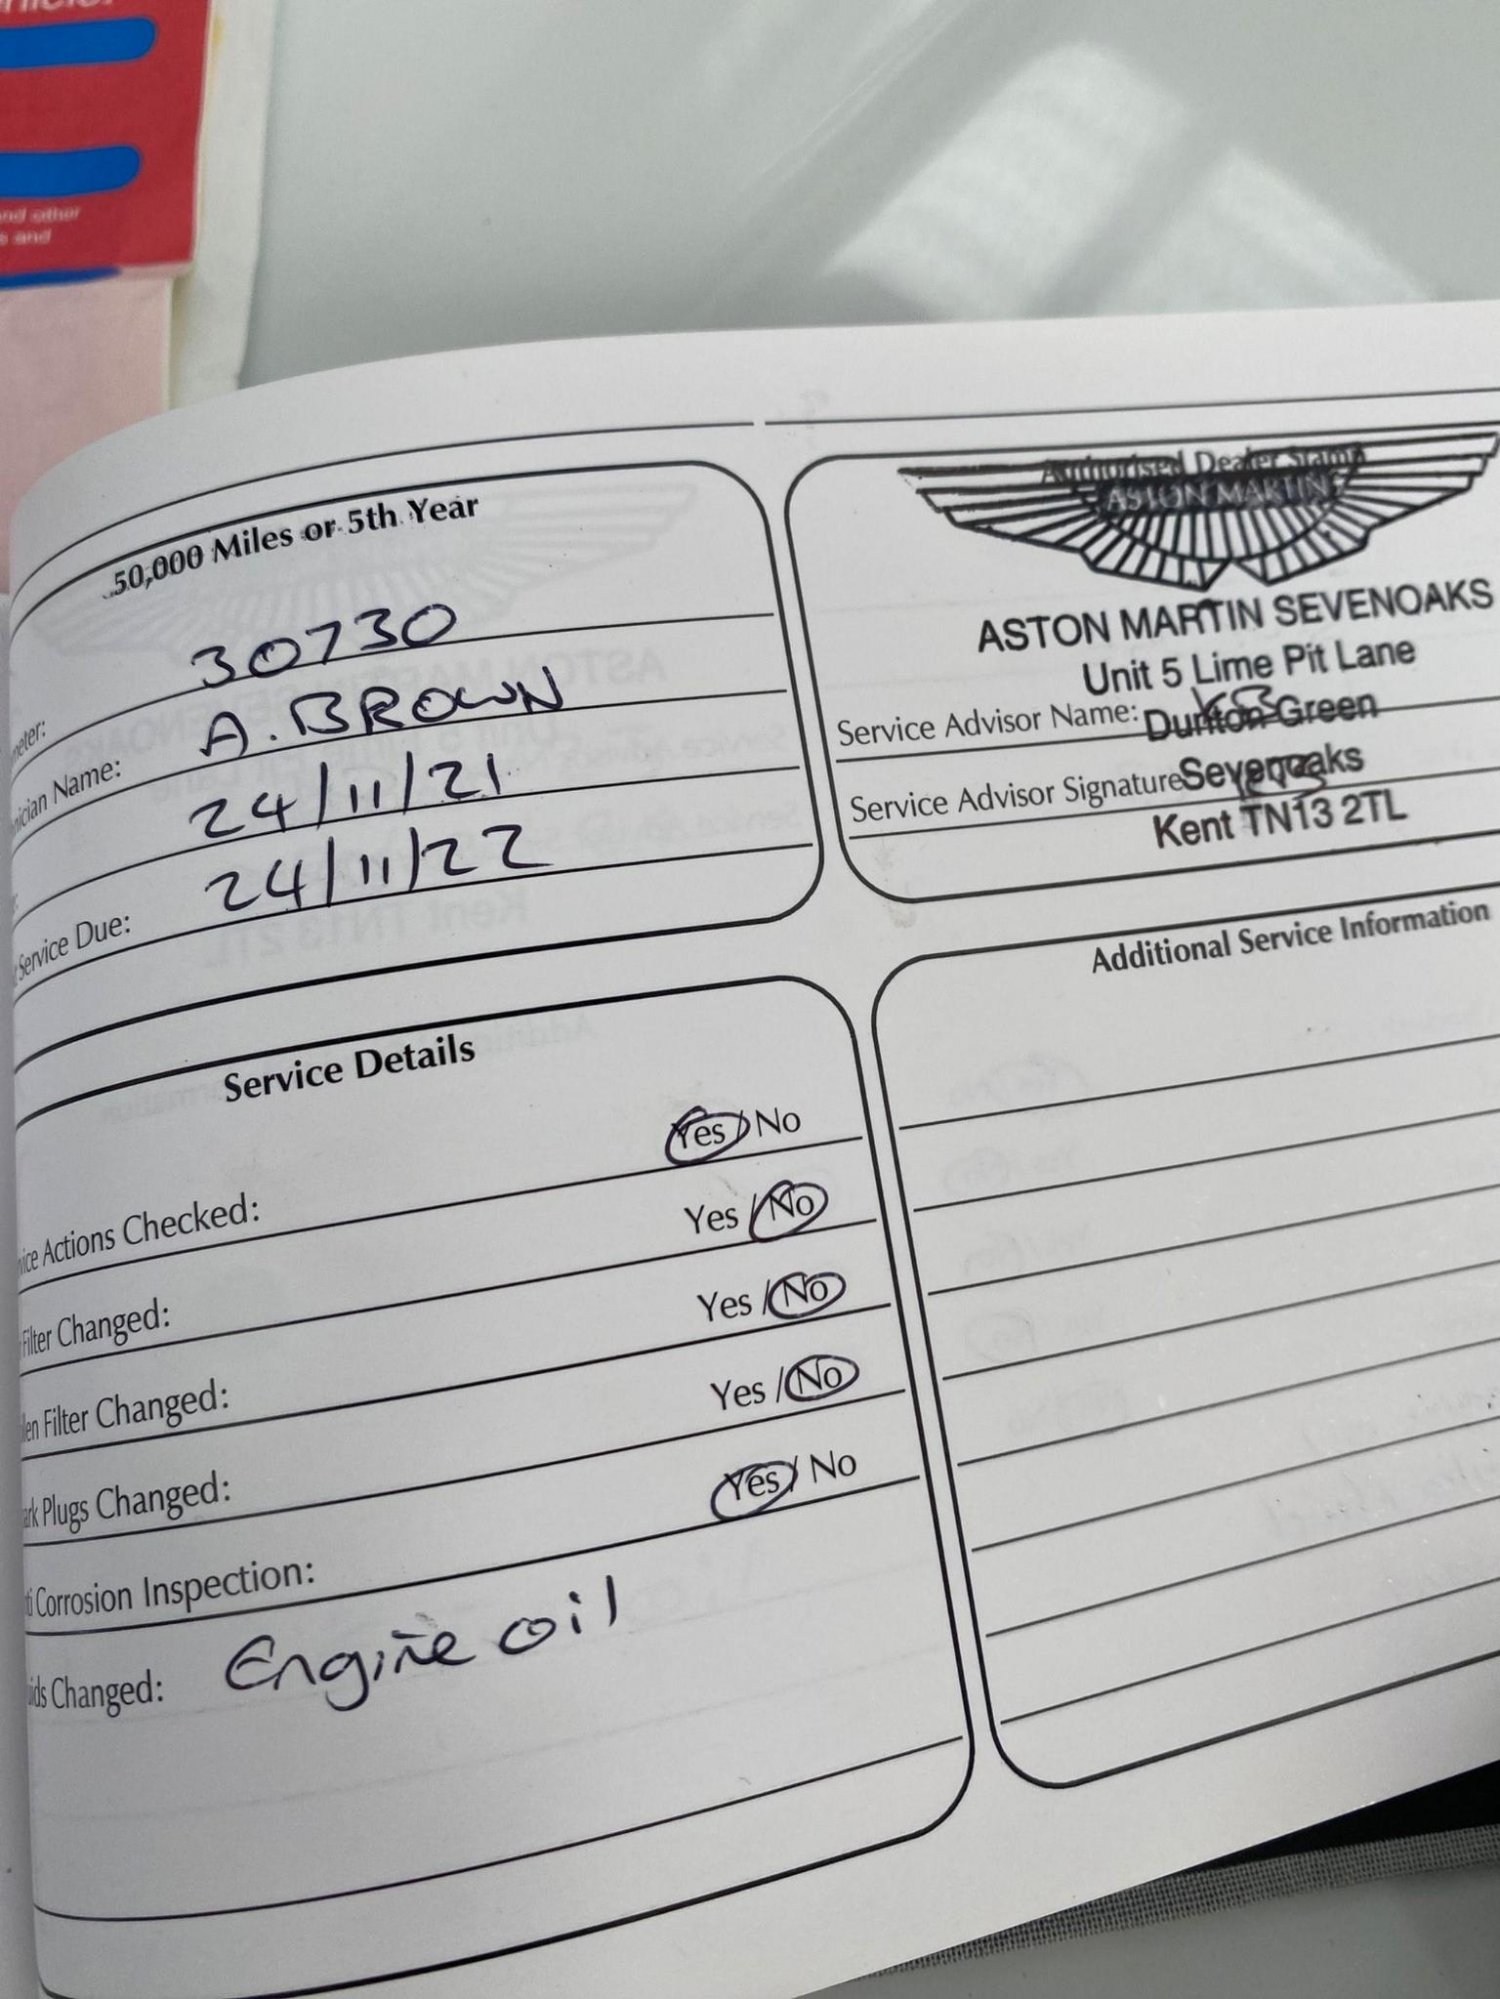 and other
s and
50,000 Miles or 5th Year
meter: 30730
nician Name: A. BROWN
24/11/21
Service Due: 24/11/22
Authorised Dealer Stamp
ASTON MARTIN
ASTON MARTIN SEVENOAKS
Unit 5 Lime Pit Lane
Service Advisor Name:
Dunton Green
Service Advisor Signature
Sevenoaks
Kent TN13 2TL
Service Details
ice Actions Checked: Yes / No
Filter Changed: Yes / No
len Filter Changed: Yes / No
ark Plugs Changed: Yes / No
ti Corrosion Inspection: Yes / No
ids Changed: Engine oil
Additional Service Information